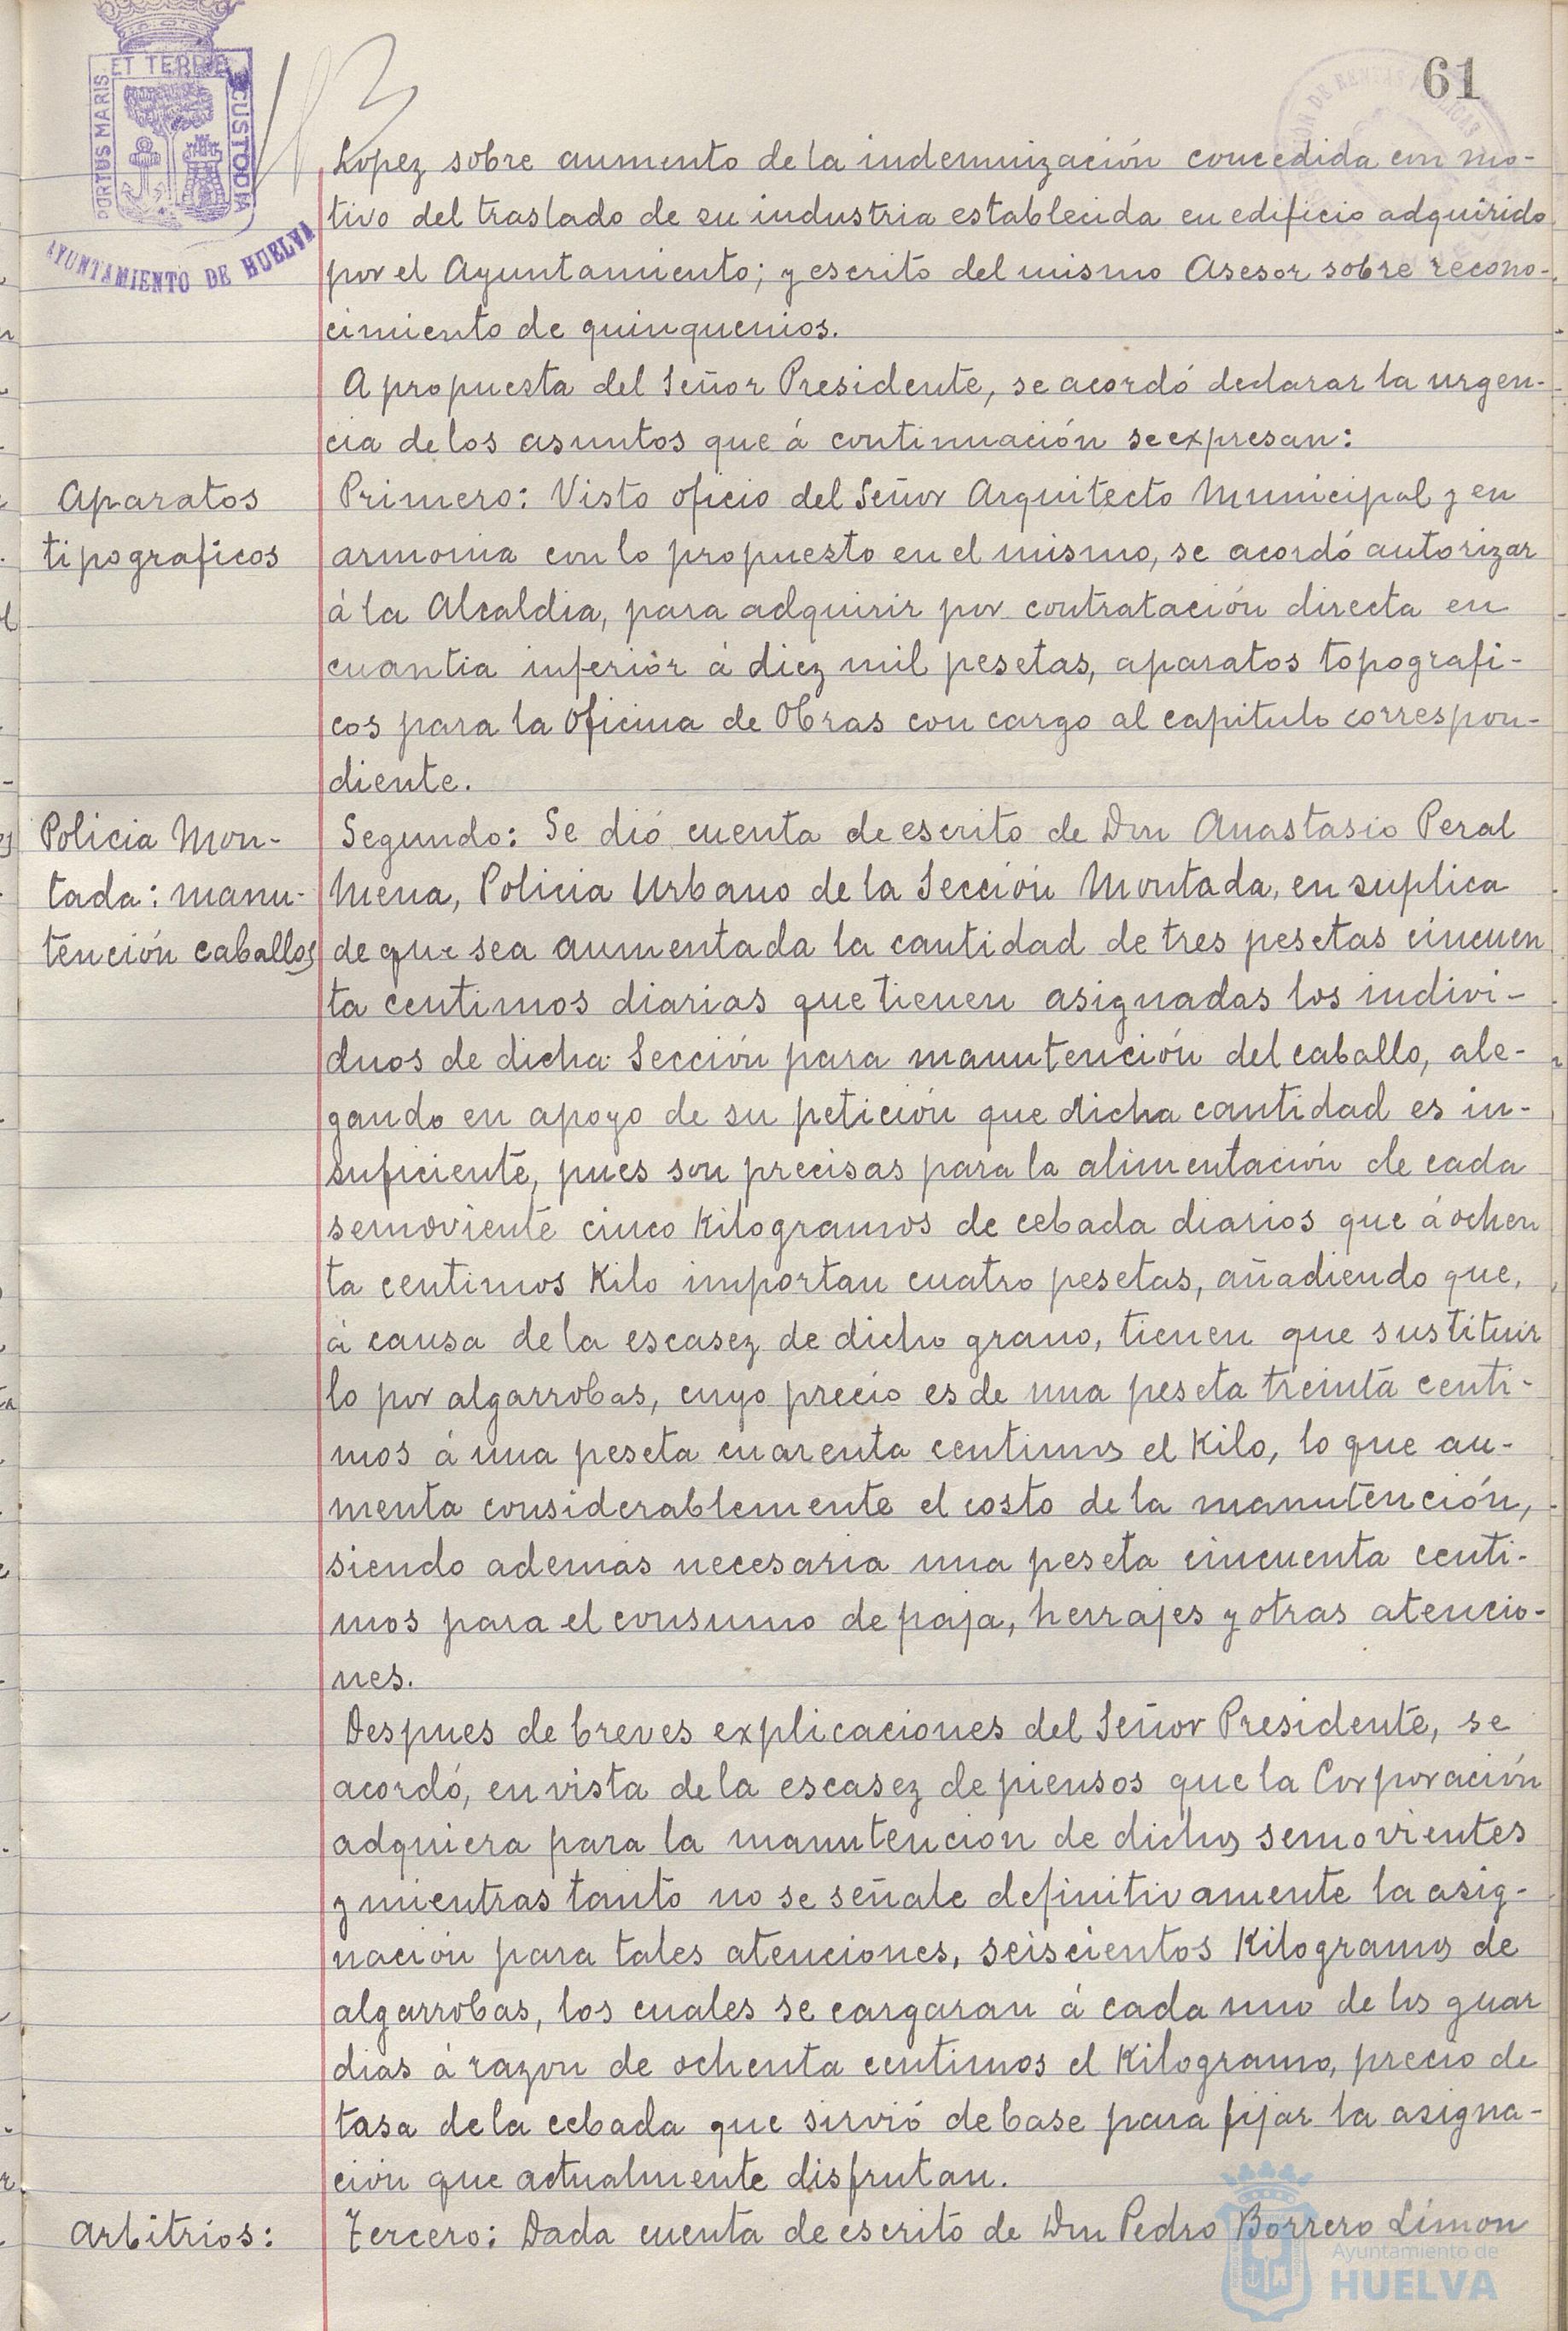 61
PORTUS MARIS ET TERRE CUSTODIA
AYUNTAMIENTO DE HUELVA
Lopez sobre aumento de la indemnización concedida con mo-
tivo del traslado de su industria establecida en edificio adquirido
por el Ayuntamiento; y escrito del mismo Asesor sobre recono-
cimiento de quinquenios.
A propuesta del Señor Presidente, se acordó declarar la urgen-
cia de los asuntos que á continuación se expresan:
Aparatos
tipograficos
Primero: Visto oficio del Señor Arquitecto Municipal y en
armonia con lo propuesto en el mismo, se acordó autorizar
á la Alcaldia, para adquirir por contratación directa en
cuantia inferior á diez mil pesetas, aparatos topografi-
cos para la Oficina de Obras con cargo al capitulo correspon-
diente.
Policia Mon-
tada: manu-
tención caballos
Segundo: Se dió cuenta de escrito de Don Anastasio Peral
Mena, Policia Urbano de la Sección Montada, en suplica
de que sea aumentada la cantidad de tres pesetas cincuen
ta centimos diarias que tienen asignadas los indivi-
duos de dicha Sección para manutención del caballo, ale-
gando en apoyo de su petición que dicha cantidad es in-
suficiente, pues son precisas para la alimentación de cada
semoviente cinco Kilogramos de cebada diarios que á ochen
ta centimos Kilo importan cuatro pesetas, añadiendo que,
á causa de la escasez de dicho grano, tienen que sustituir
lo por algarrobas, cuyo precio es de una peseta treinta centi-
mos á una peseta cuarenta centimos el Kilo, lo que au-
menta considerablemente el costo de la manutención,
siendo además necesaria una peseta cincuenta centi-
mos para el consumo de paja, herrajes y otras atencio-
nes.
Despues de breves explicaciones del Señor Presidente, se
acordó, en vista de la escasez de piensos que la Corporación
adquiera para la manutención de dichos semovientes
y mientras tanto no se señale definitivamente la asig-
nación para tales atenciones, seiscientos Kilogramos de
algarrobas, los cuales se cargaran á cada uno de los guar
dias á razon de ochenta centimos el Kilogramo, precio de
tasa de la cebada que sirvió de base para fijar la asigna-
ción que actualmente disfrutan.
Arbitrios:
Tercero: Dada cuenta de escrito de Don Pedro Borrero Limon
Ayuntamiento de
HUELVA